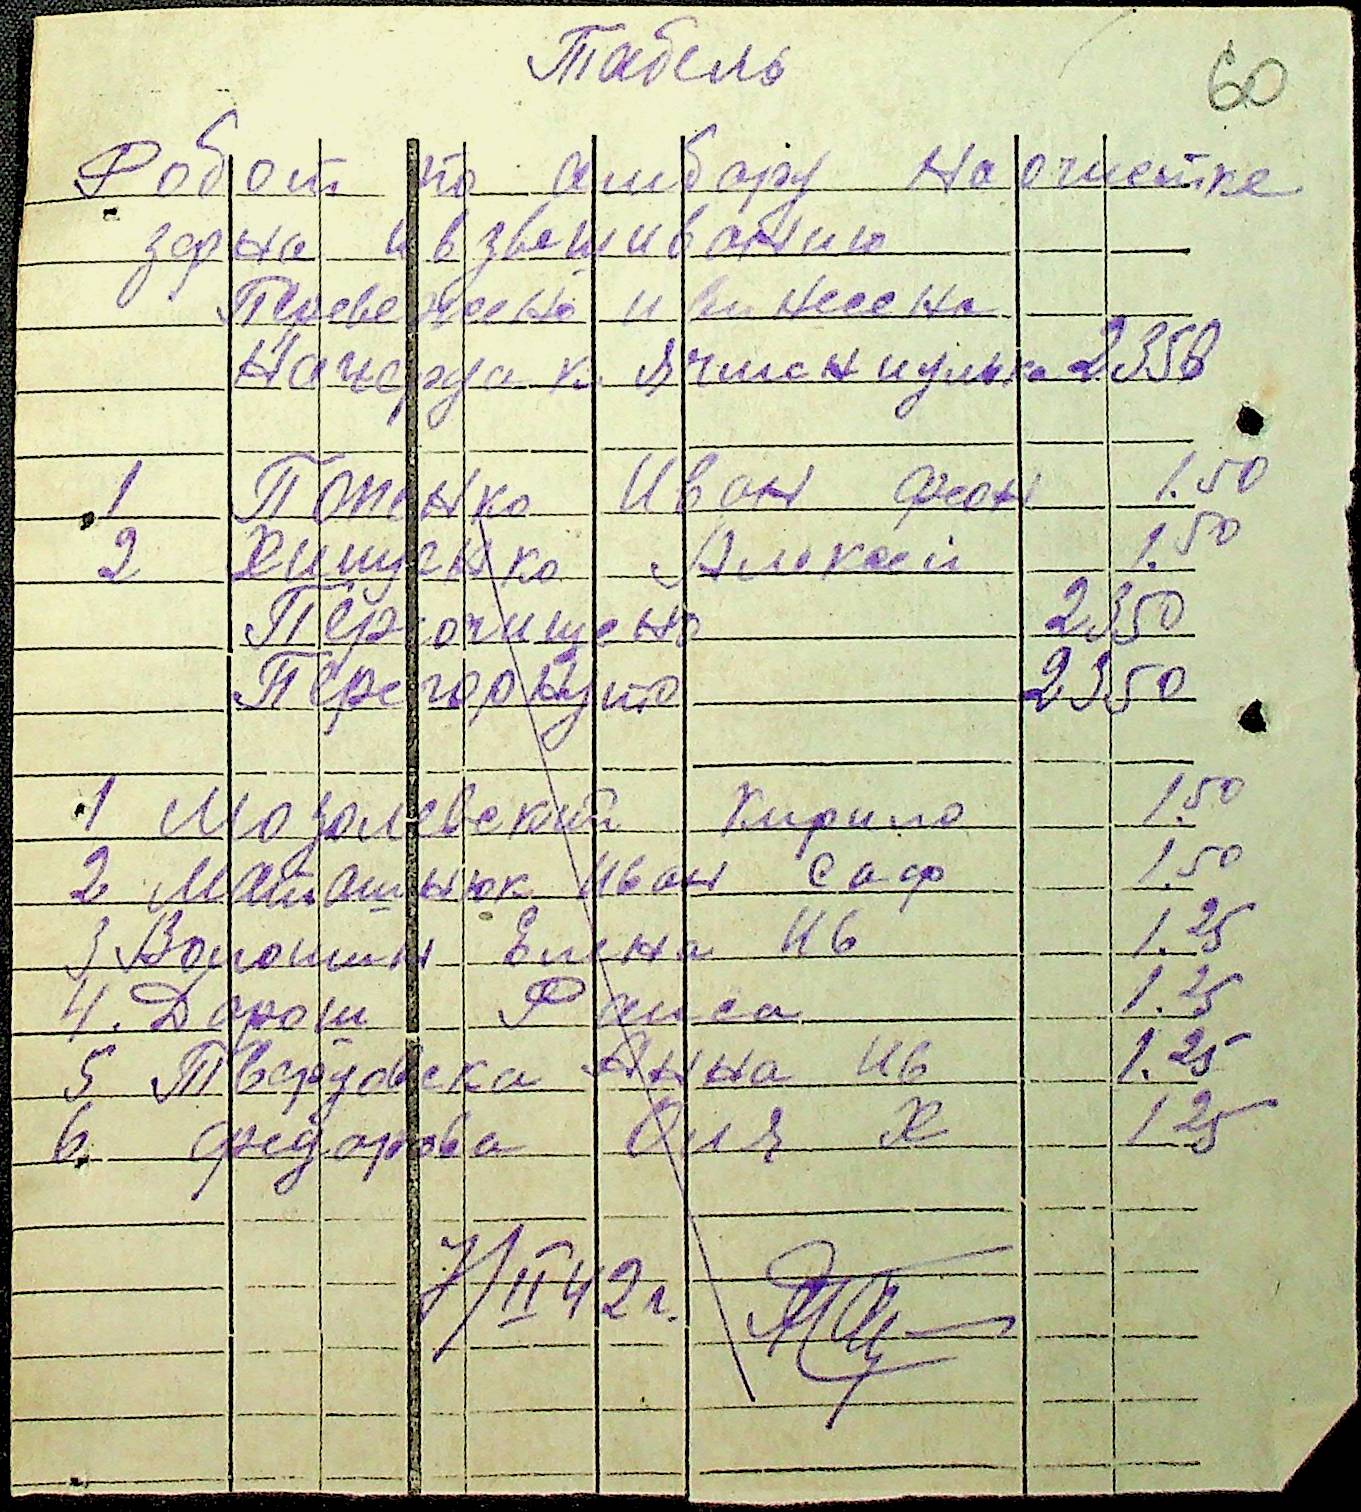 Табель
60
Робот по амбару на очистке
зерна и взвешиванию
Перевезено и винесена
На чердак. Ячменю кулька 2350
1 Попенко Иван Фон 1.50
2 Алокей 1.50
Перочищено 2350
Перегорнуто 2350
1 Мозолевский Кирило 1.50
2 Маташнюк Иван Саф 1.50
3 Волошин Елена Ив 1.25
4. Дорош Раиса 1.25
5 Твердовска Анна Ив 1.25
6. Федорова Оля Х 1 25
7/II 42 г.